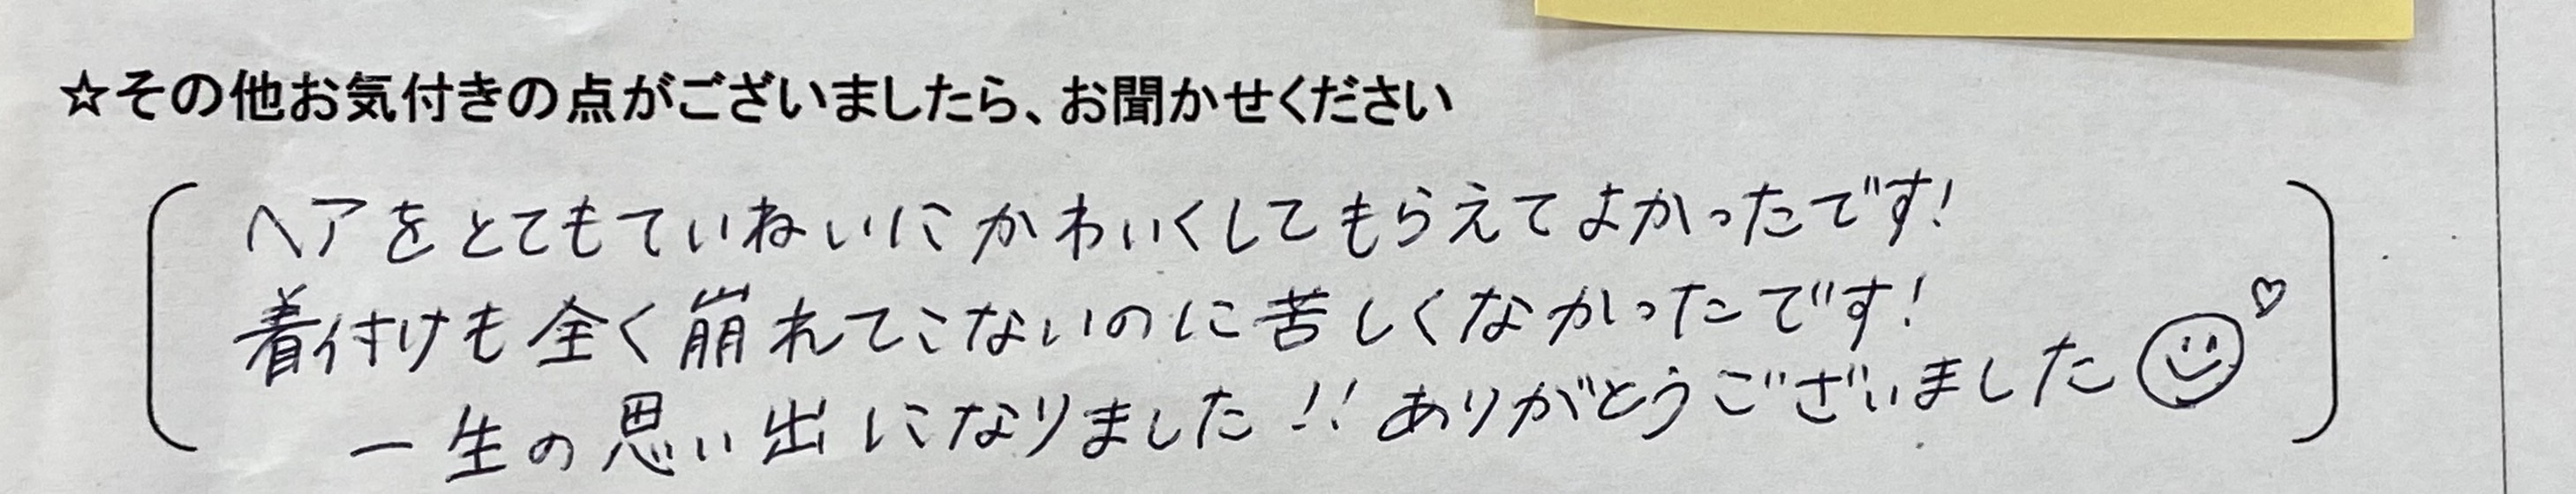 ☆その他お気付きの点がございましたら、お聞かせください
ヘアをとてもていねいにかわいくしてもらえてよかったです!
着付けも全く崩れてこないのに苦しくなかったです!
一生の思い出になりました!! ありがとうございました